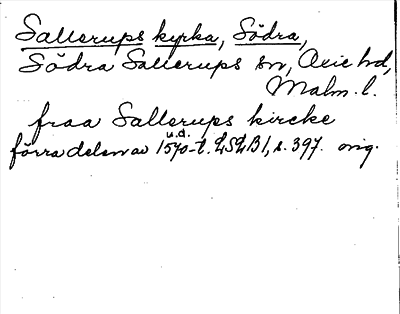 Sallerups kyrka, Södra,
Södra Sallerups sn, Oxie hd,
Malm. l.
fraa Sallerups kircke
u.d.
förra delen av 1570-t. LSLB 1, s. 397. orig.